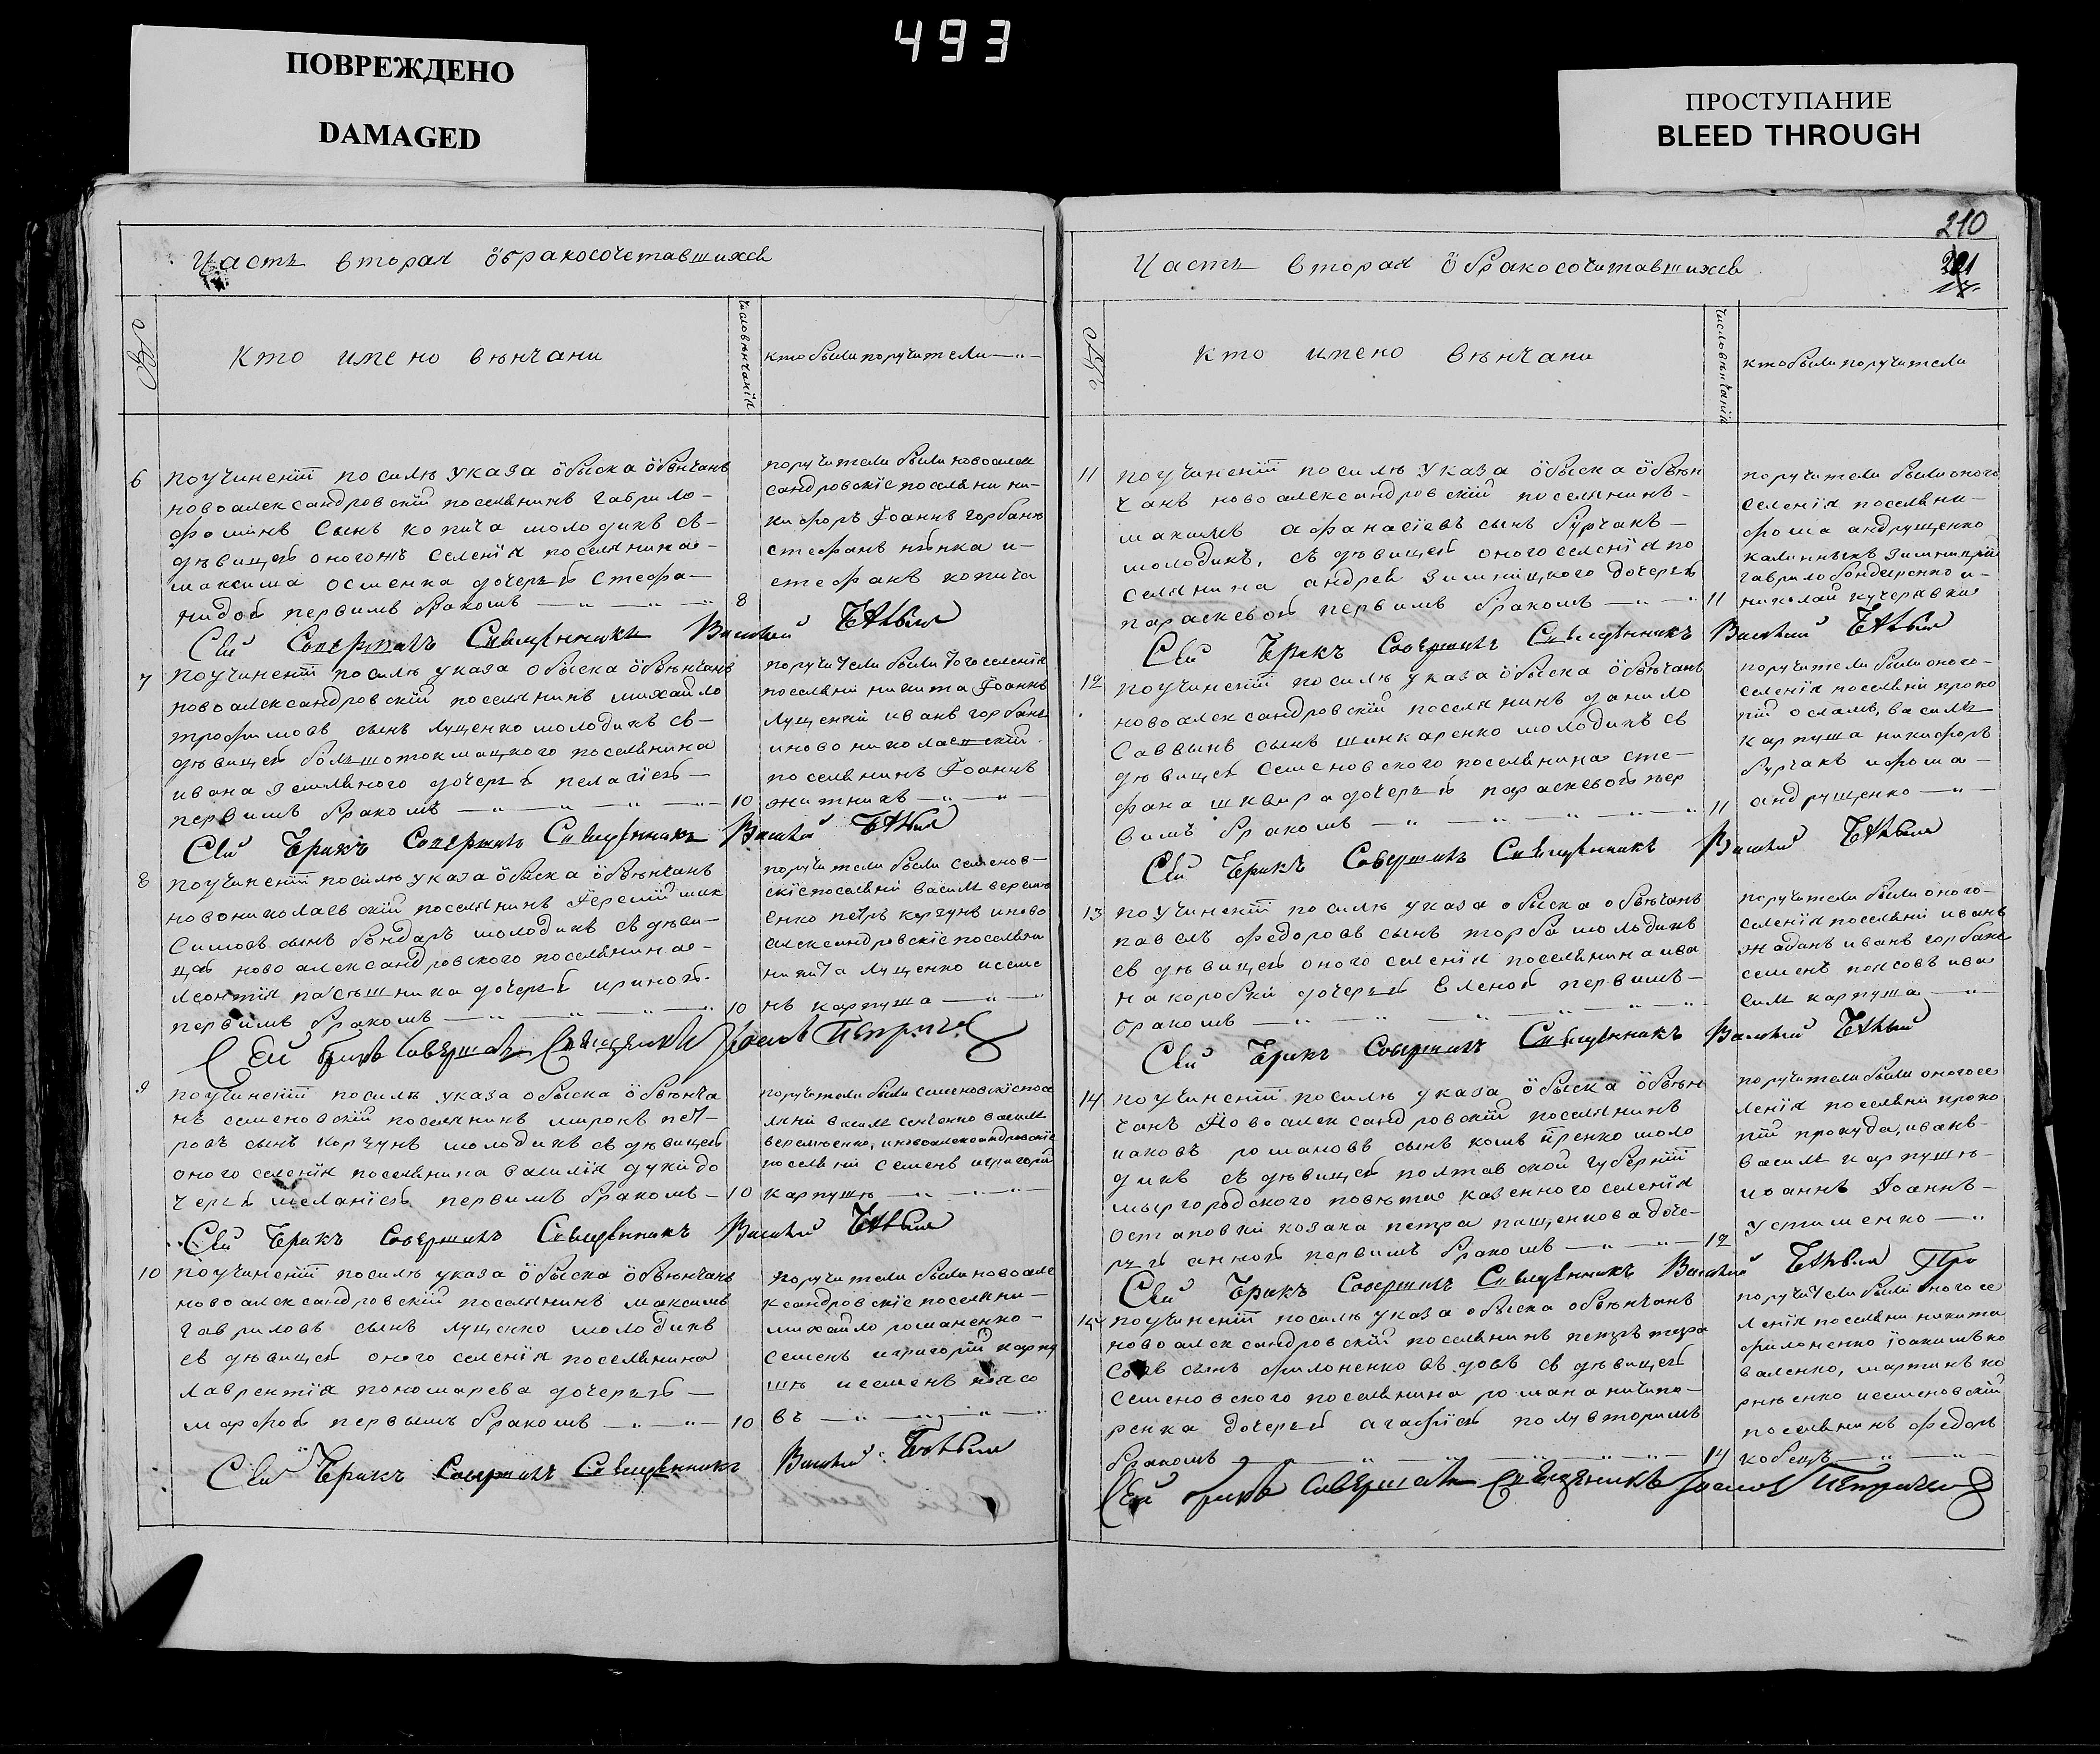 493
ПОВРЕЖДЕНО
DAMAGED
ПРОСТУПАНИЕ
BLEED THROUGH
Часть вторая о бракосочетавшихся
№
кто имено венчани
число венчаний
кто были поручители
6
поучинении посилѣ указа обыска обвенчанъ
новоалександровский поселянинъ гаврило
фоминъ сынъ копича молодикъ съ
девицей оного жъ селения поселянина
максима осменка дочерей стефа
нидой первимъ бракомъ
8
поручители были новоалек
сандровские поселяни ни
кифоръ Іоаннъ горбань
стефанъ
и
стефанъ копича
Сей Совершалъ Священникъ Василий
7
поучинении посилѣ указа обыска обвѣнчанъ
новоалександровский поселянинъ михайло
трофимовъ сынъ лущенко молодикъ съ
девицей большотокмацкого поселянина
ивана земляного дочерей пелагией
первимъ бракомъ
10
поручители были того селения
поселяни никита Іоаннъ
лущенки иванъ горбань
и новониколаевский
поселянинъ Іоаннъ
житникъ
Сей Бракъ Совершалъ Священникъ Василий
8
поучинении посилѣ указа обыска обвѣнчанъ
новониколаевский поселянинъ Іеремий мак
симовъ сынъ бондарь молодикъ съ деви
цей новоалександровского поселянина
леонтия пасѣшника дочерей ириной
первимъ бракомъ
10
поручители были семенов
ские поселяни василь веремѣ
енко петръ коржунъ и ново
александровские поселяни
никита лущенко и семе
нъ карпуша
Сей бракъ Совершалъ Священникъ
9
поучинении посилѣ указа обыска обвѣнча
нъ семеновский поселянинъ миронъ пет
ровъ сынъ коржунъ молодикъ съ девицей
оного селения поселянина василия дуки до
черей меланией первимъ бракомъ
10
поручители были семеновские посе
ляни василь сенченко василь
веремѣенко, и новоалександровские
поселяни семенъ и григорий
карпушѣ
Сей Бракъ Совершалъ Священникъ Василий
10
поучинении посилѣ указа обыска обвѣнчанъ
новоалександровский поселянинъ максимъ
гавриловъ сынъ лущенко молодикъ
съ девицей оного селения поселянина
лаврентия пономарева дочерей
марфой первымъ бракомъ
10
поручители были новоале
ксандровские поселяни
михайло романенко
семенъ и григорий карпу
шѣ и семенъ поясо
въ
Сей Бракъ Совершалъ Священникъ Василий
210
Часть вторая о бракосочитавшихся
№
кто имено вѣнчани
число вѣнчаний
кто были поручители
11
поучинении посилѣ указа обыска обвен
чанъ новоалександровский поселянинъ
максимъ афанасиевъ сынъ бурчакъ
молодикъ, съ девицей оного селения по
селянина андрея зимницкого дочерей
параскевой первимъ бракомъ
11
поручители были оного
селения поселяни
фома андрущенко
гаврило бондаренко и
николай кучерявка
Сей Бракъ Совершалъ Священникъ Василий
12
поучинении посилѣ указа обыска обвѣнчанъ
новоалександровский поселянинъ данило
саввинъ сынъ шинкаренко молодикъ съ
девицей семеновского поселянина сте
фана шквира дочерей параскевой пер
вимъ бракомъ
11
поручители были оного
селения поселяни проко
пий осламъ, василь
карпуша никифоръ
бурчакъ и фома
андрущенко
Сей Бракъ Совершалъ Священникъ Василий
13
поучинении посилѣ указа обыска обвѣнчанъ
павелъ федоровъ сынъ торба молодикъ
съ девицей оного селения поселянина ива
на коробки дочерей еленой первимъ
бракомъ
поручители были оного
селения поселяни иванъ
жаданъ иванъ горбань
семенъ поясовъ и ва
силь карпуша
Сей Бракъ Совершалъ Священникъ Василий
14
поучинении посилѣ указа обыска обвен
чанъ Новоалександровский поселянинъ
иаковъ романовъ сынъ
моло
дикъ съ девицей полтавской губернии
мыргородского повѣта казенного селения
остаповки козака петра пащенкова доче
рей анной первимъ бракомъ
12
поручители были оного се
ления поселяни проко
пий прокуда, иванъ
василь карпушѣ
иоаннъ Іоаннъ
устименко
Сей Бракъ Совершалъ Священникъ Василий
поучинении посилѣ указа обыска обвѣнчанъ
новоалександровский поселянинъ петръ тара
совъ сынъ филоненко вдовъ съ девицей
семеновского поселянина романа ничипо
ренка дочерей агафией полувторимъ
бракомъ
14
поручители были оного се
ления поселяни никита
филоненко іоакимъ ко
валенко, мартинъ ко
рнѣенко и семеновский
поселянинъ федоръ
кобецъ
Сей бракъ Совершалъ Священникъ